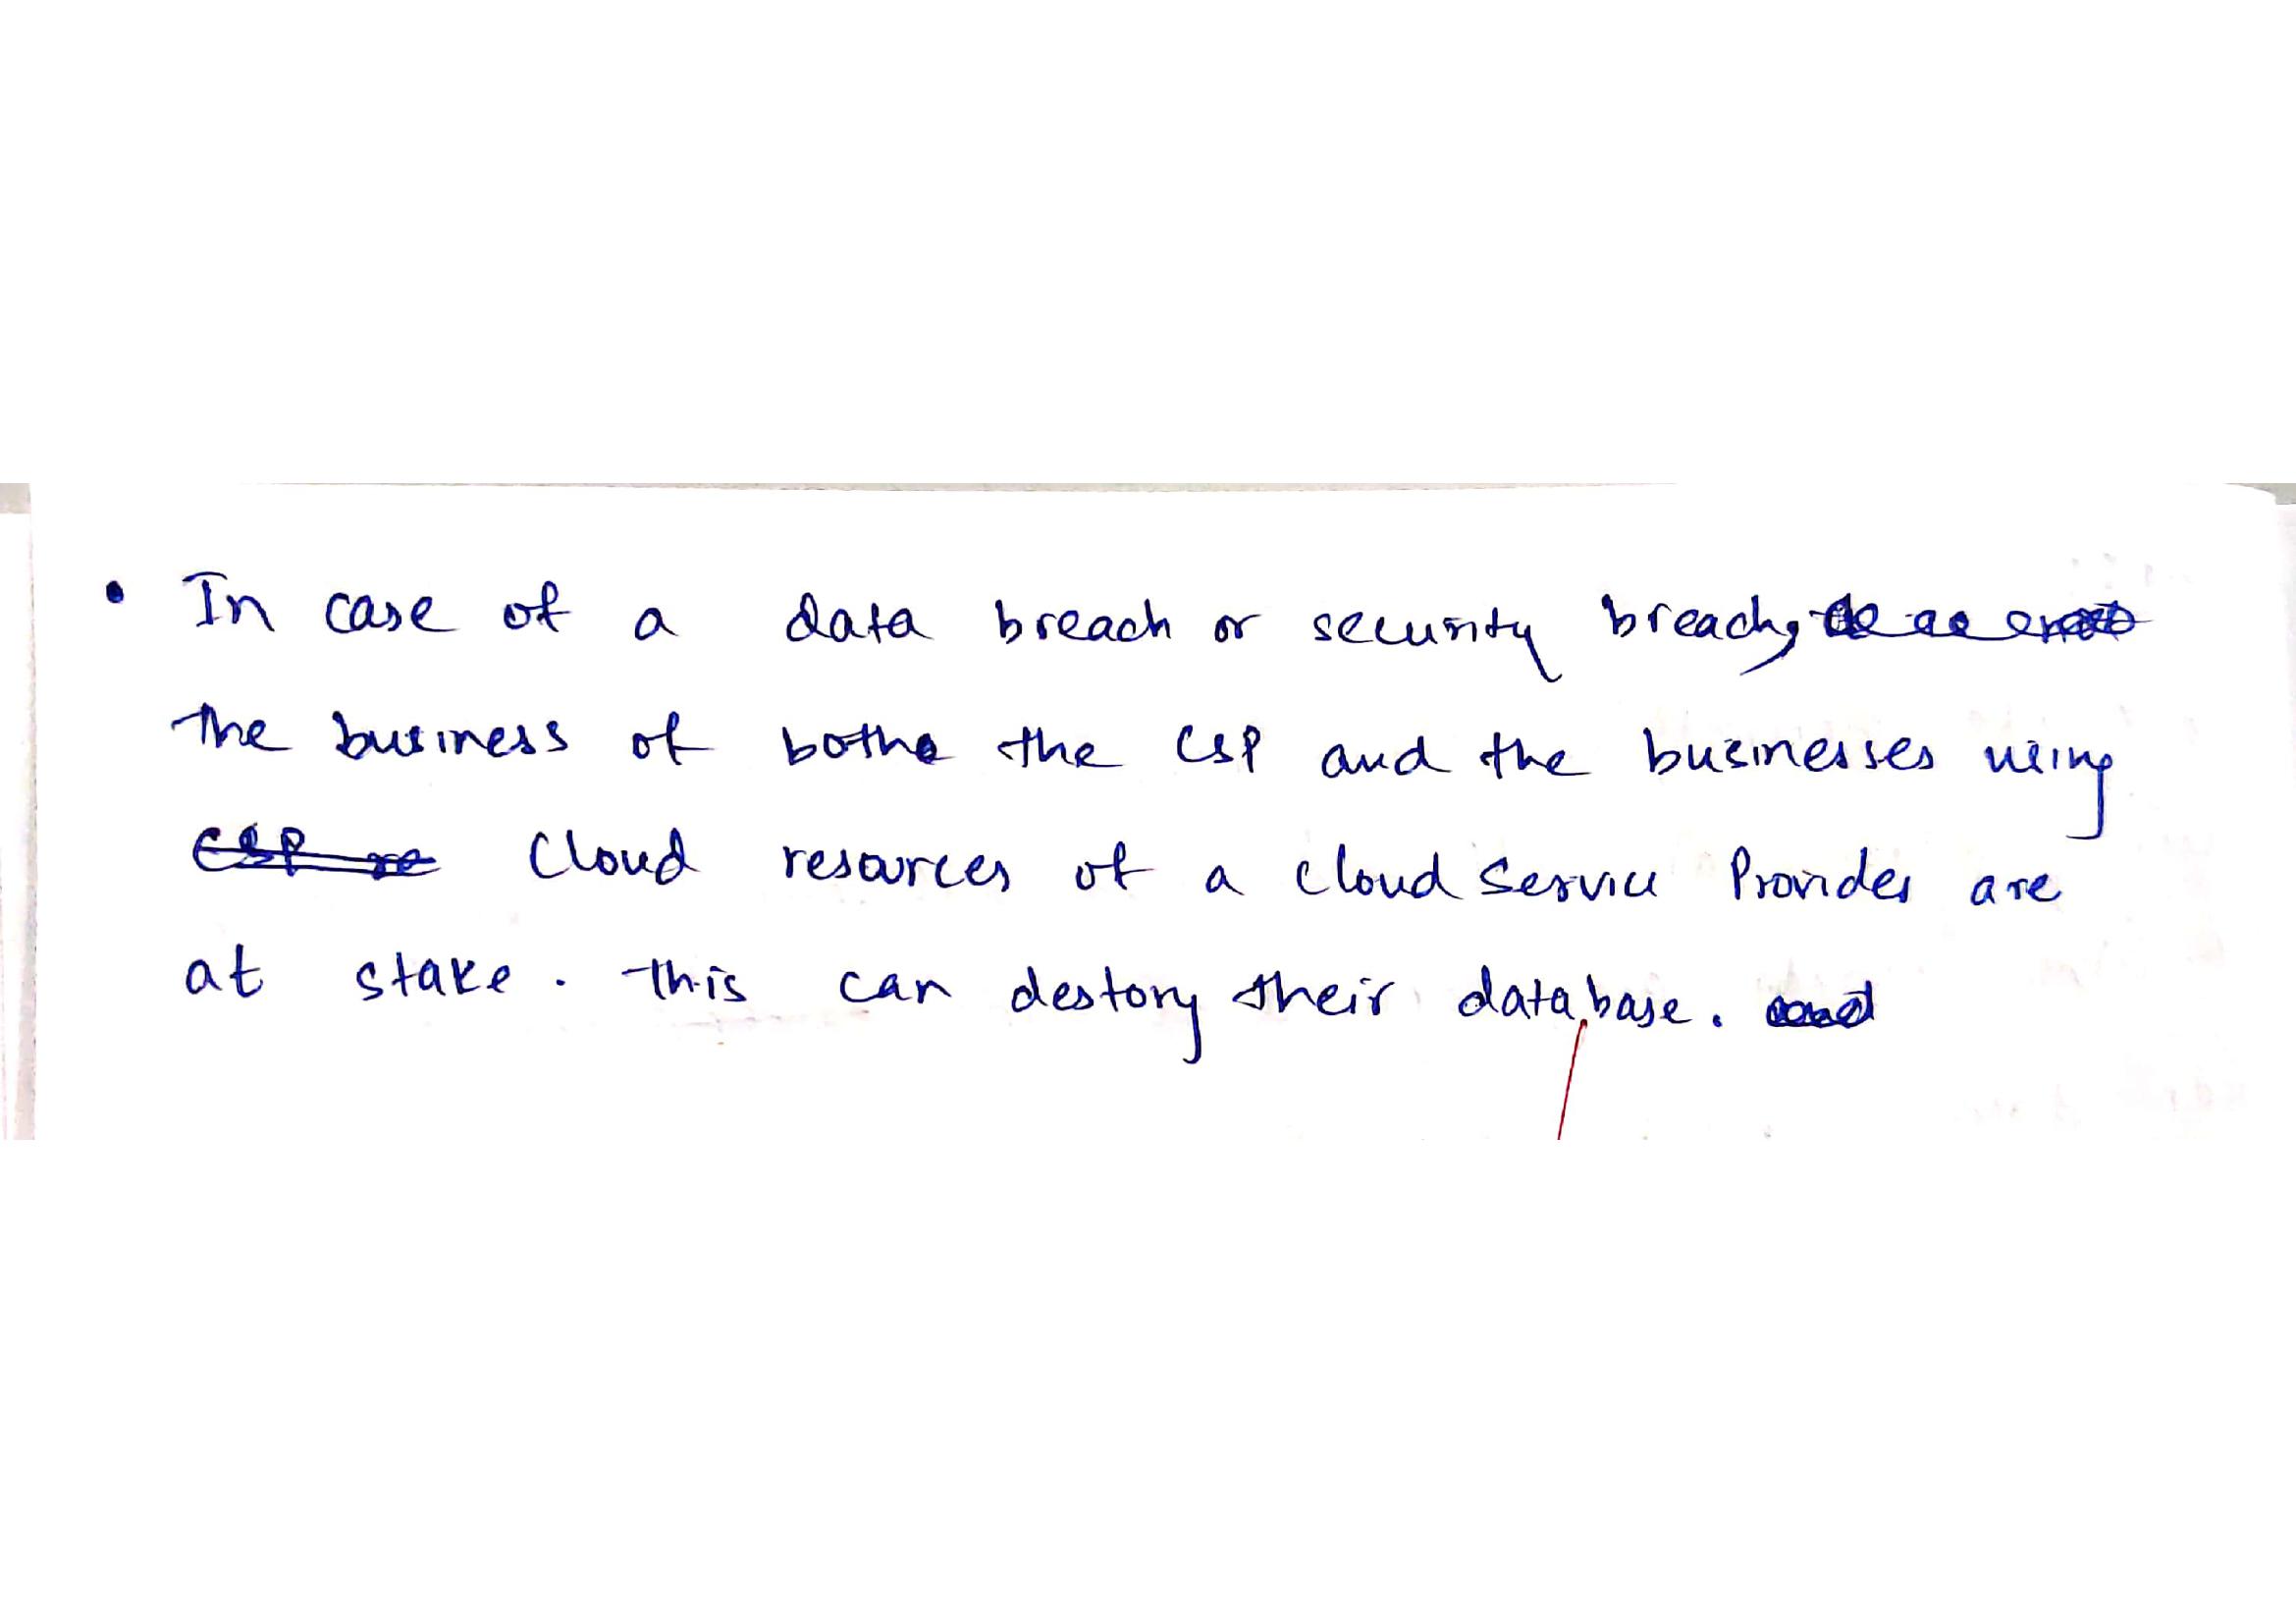 • In case of a data breach or security breach,
the business of both the CSP and the businesses using
Cloud resources of a cloud service Provider are
at stake. This can destory their database.